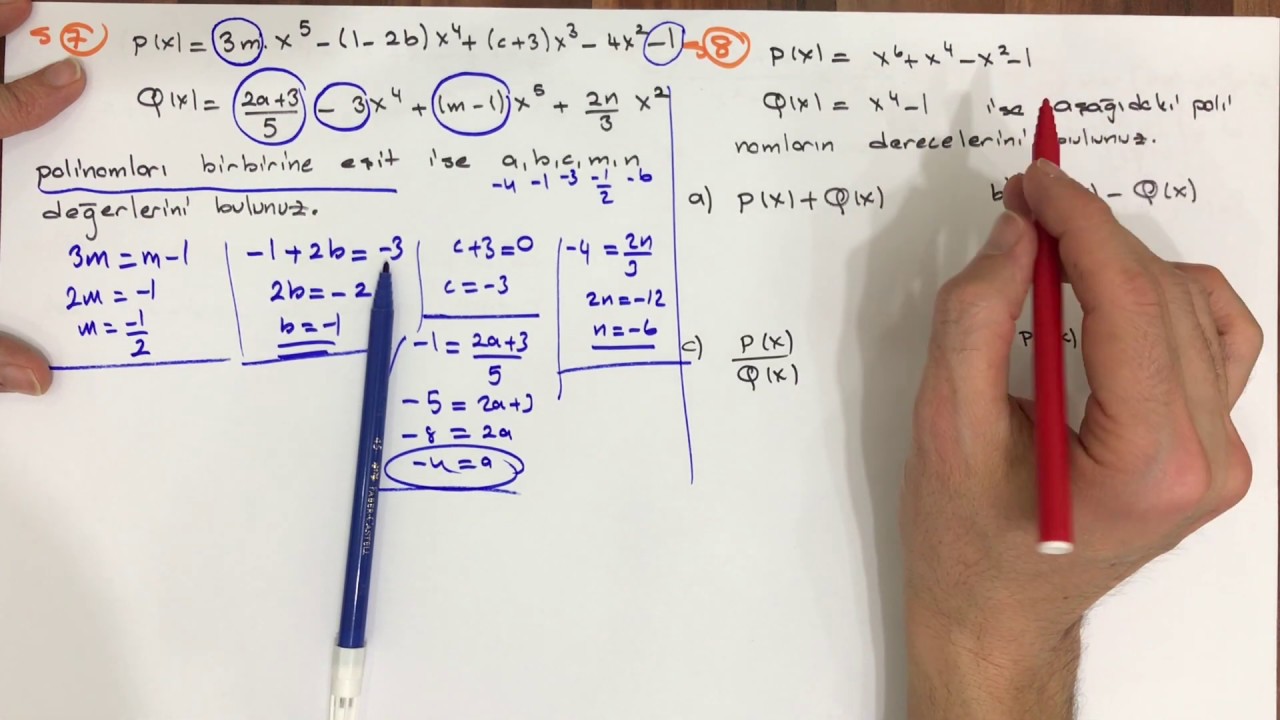 S 7 P(x) = 3m. x⁵ - (1 - 2b) x⁴ + (c+3) x³ - 4x² - 1
Q(x) = (2a+3)/5 - 3x⁴ + (m-1) x⁵ + 2n/3 x²
polinomları birbirine eşit ise a, b, c, m, n
-4 -1 -3 -1/2 -6
değerlerini bulunuz.
3m = m-1
2m = -1
m = -1/2
-1 + 2b = -3
2b = -2
b = -1
c+3 = 0
c = -3
-1 = (2a+3)/5
-5 = 2a+3
-8 = 2a
-4 = a
-4 = 2n/3
2n = -12
n = -6
8 P(x) = x⁶ + x⁴ - x² - 1
Q(x) = x⁴ - 1 ise aşağıdaki poli
nomların derecelerini bulunuz.
a) P(x) + Q(x)
- Q(x)
c) P(x)/Q(x)